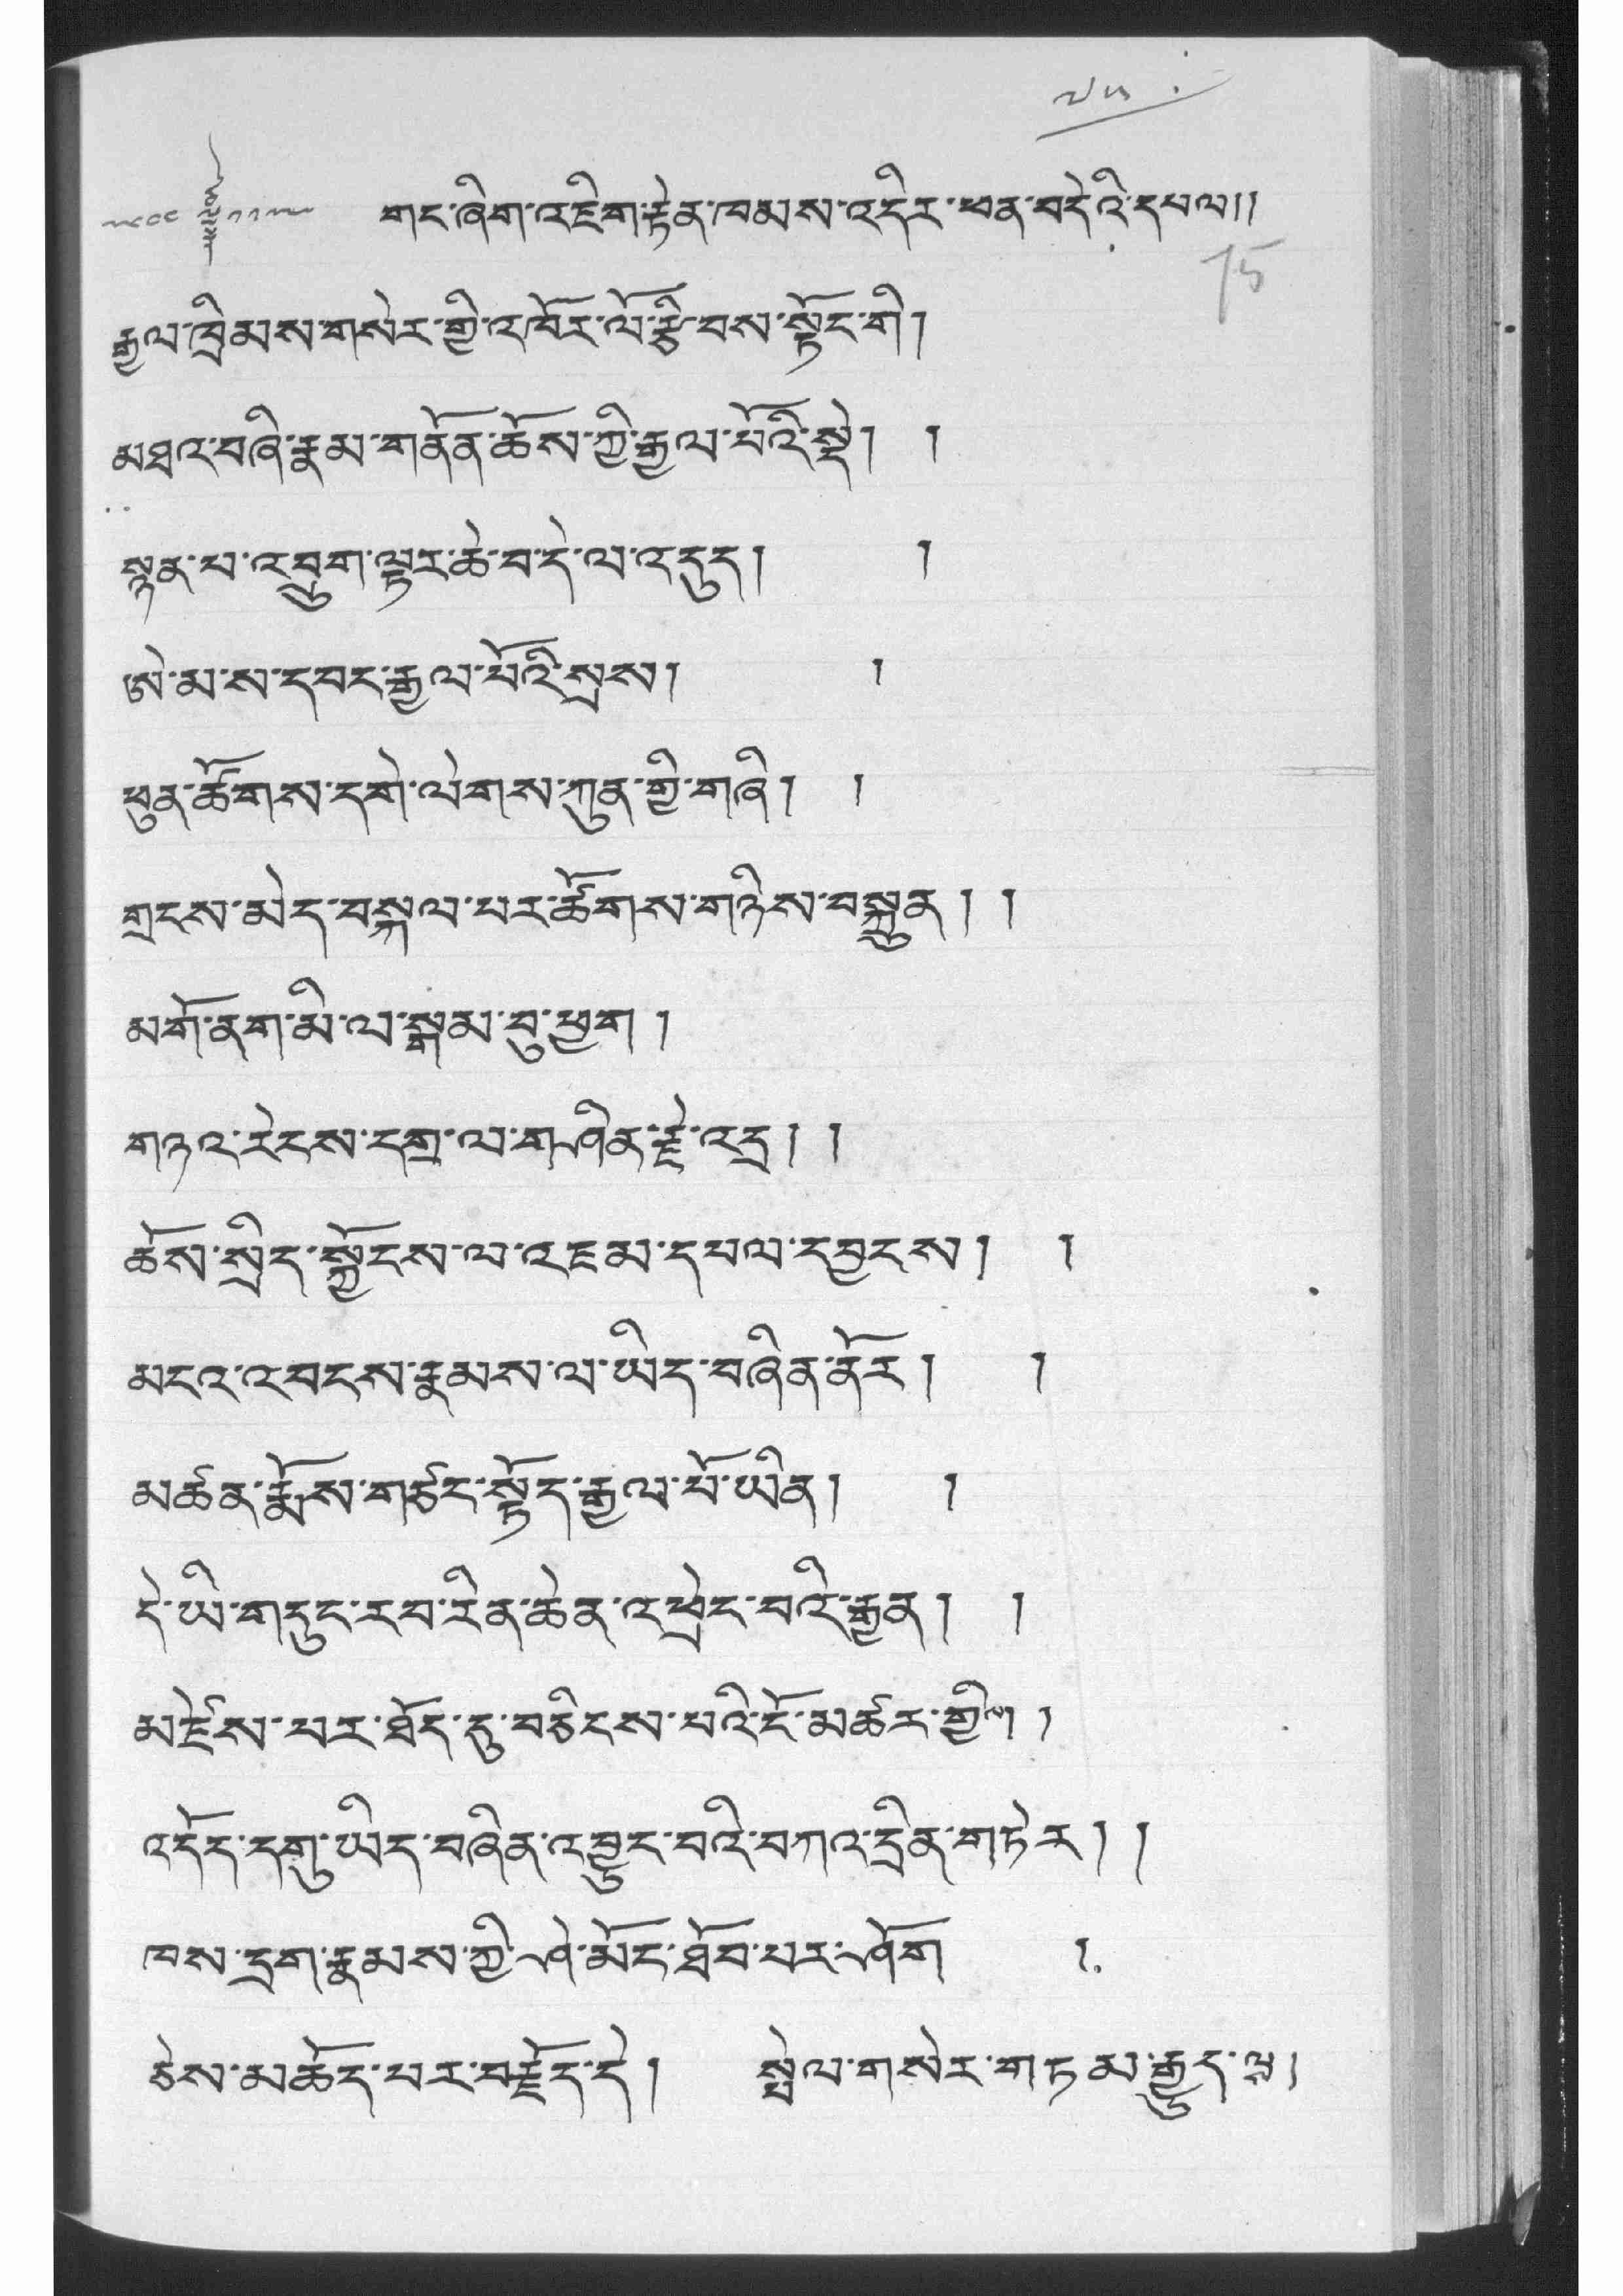 ༄༅། གང་ཞིག་འཇིག་རྟེན་ཁམས་འདིར་ཕན་བདེའི་དཔལ།།
75
རྒྱལ་ཁྲིམས་གསེར་གྱི་འཁོར་ལོ་རྩིབས་སྟོང་གི།
མཐའ་བཞི་རྣམ་གནོན་ཆོས་ཀྱི་རྒྱལ་པོའི་སྡེ། །
སྙན་པ་འབྲུག་ལྟར་ཆེ་བ་དེ་ལ་འདུད། །
ཨེ་མ་ས་དབང་རྒྱལ་པོའི་སྲས། །
ཕུན་ཚོགས་དགེ་ལེགས་ཀུན་གྱི་གཞི། །
གྲངས་མེད་བསྐལ་པར་ཚོགས་གཉིས་བསྐྲུན། །
མགོ་ནག་མི་ལ་སྒམ་བུ་ཕྱག །
གཉའ་རེངས་དགྲ་ལ་གཤིན་རྗེ་འདྲ། །
ཆོས་སྲིད་སྐྱོངས་ལ་འཇམ་དཔལ་དབྱངས། །
མངའ་འབངས་རྣམས་ལ་ཡིད་བཞིན་ནོར། །
མཚན་རྨོས་གཙང་སྟོད་རྒྱལ་པོ་ཡིན། །
དེ་ཡི་གདུང་རབ་རིན་ཆེན་འཕྲེང་བའི་རྒྱན། །
མཛེས་པར་ཐོད་དུ་བཅིངས་པའི་ངོ་མཚར་གྱིས། །
འདོད་དགུ་ཡིད་བཞིན་འབྱུང་བའི་བཀའ་དྲིན་གཏེར། །
ཁས་དྲག་རྣམས་ཀྱི་ཤེ་མོང་ཐོབ་པར་ཤོག །
ཅེས་མཆོད་པར་བརྗོད་དེ། སྤེལ་གསེར་གཏམ་རྒྱུད་ལྔ།